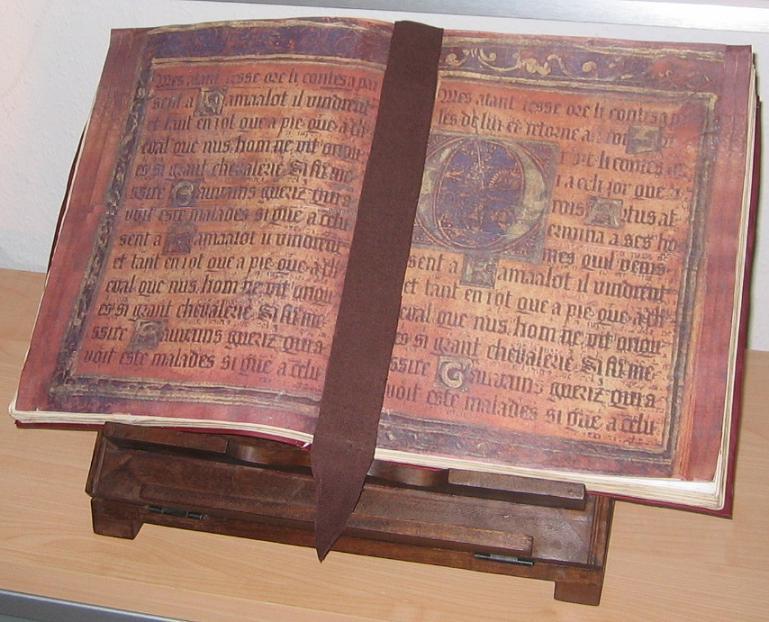 Mes atant tesse ore li contes a par
sent a Kamaalot il vindrent
et tant en iot que a pie que a ch
eual que nus hom ne vit onqu
es si grant chevalerie. Si fu me
ssire Gauuains queriz qui ra
voit este malades si que a celu
sent a Kamaalot il vindrent
et tant en iot que a pie que a ch
eual que nus hom ne vit onqu
es si grant chevalerie. Si fu me
ssire Gauuains queriz qui ra
voit este malades si que a celu
Mes atant tesse ore li contes a p
les de lui et retorne a
li contes
i a celi jor que
rois Artus at
ermina a ses ho
mes quil venis
sent a Kamaalot il vindrent
et tant en iot que a pie que a ch
eual que nus hom ne vit onqu
es si grant chevalerie. Si fu me
ssire Gauuains queriz qui ra
voit este malades si que a celu